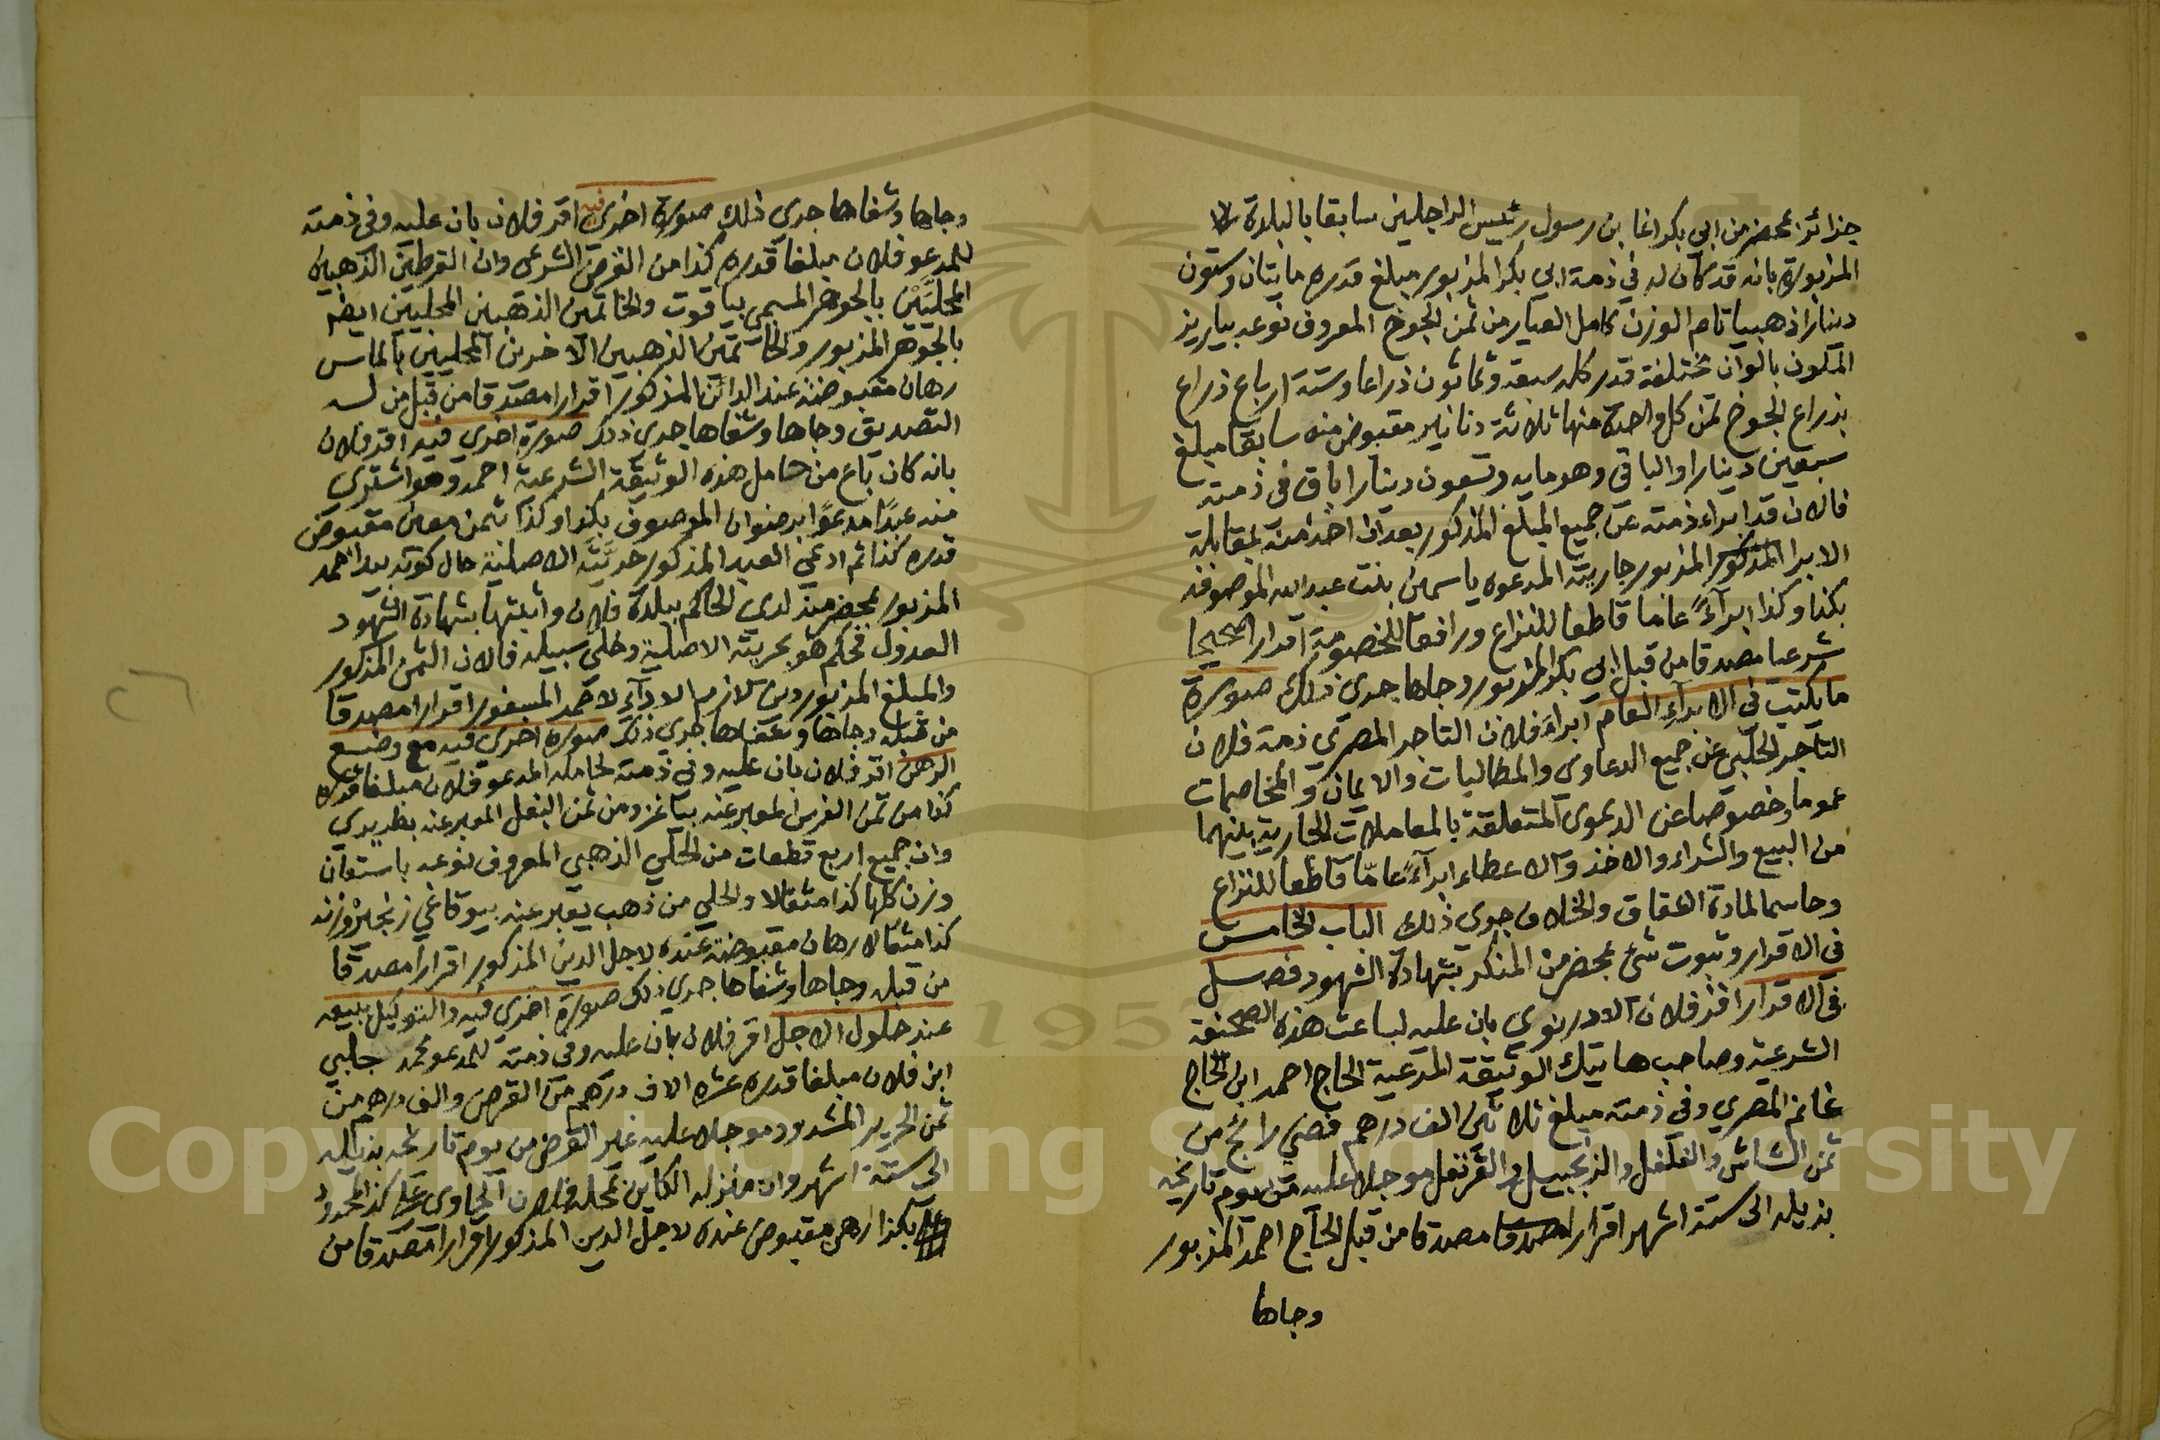 جزائر بمحضر من ابي بكر اغا بن رسول رئيس الراجلين سابقا بالبلدة
المزبورة بانه قد كان له في ذمة ابي بكر المزبور مبلغ قدره مايتان وستون
دينارا ذهبيا تام الوزن كامل العيار من ثمن الجوخ المعروف نوعه بپاريز
المكون بالوان مختلفة قدر كله سبعة وثمانون ذراعا وستة ارباع ذراع
بذراع الجوخ ثمن كل واحدة منها ثلاثة دنانير مقبوض منه سابقا مبلغ
سبعين دينارا والباقي وهو مايه وتسعون دينارا باق في ذمته
فالان قد ابراء ذمته عن جميع المبلغ المذكور بعد ان اخذ منه بمقابلة
الابرا المذكور المزبور جاريته المدعوه ياسمين بنت عبد الله الموصوفة
بكذا وكذا ابرآءً عاما قاطعا للنزاع ورافعا للخصومة اقرارا صحيحا
شرعيا مصدقا من قبل ابي بكر المزبور وجاها جرى ذلك صورة
ما يكتب في الابرآء العام ابراء فلان التاجر المصري ذمة فلان
التاجر الحلبي عن جميع الدعاوي والمطالبات والايمان والمخاصمات
عموما وخصوصا عن الدعوى المتعلقة بالمعاملات الجارية بينهما
من البيع والشراء والاخذ والاعطاء ابرآءً عامّا قاطعا للنزاع
وحاسما لمادة الشقاق والخلاف جرى ذلك الباب الخامس
في الاقرار وثبوت شئ بمحضر من المنكر بشهادة الشهود فصل
في الاقرار اقر فلان الادرنوي بان عليه لباعث هذه الصحيفة
الشرعية وصاحب هاتيك الوثيقة المرعية الحاج احمد ابن الحاج
غانم المصري وفي ذمته مبلغ ثلاثين الف درهم فضي رائج من
ثمن الشاش والفلفل والزنجبيل والقرنفل موجلا عليه من يوم تاريخه
بذيله الى ستة اشهر اقرارا مصدقا مصدقا من قبل الحاج احمد المزبور
وجاها
وجاها وشفاها جرى ذلك صورة اخرى فيه اقر فلان بان عليه وفي ذمته
للمدعو فلان مبلغا قدره كذا من القرض الشرعى وان القرطين الذهبين
المحليَّيْن بالجوهر المسمى بياقوت والخاتمين الذهبين المحليين ايضا
بالجوهر المزبور والخاتمين الذهبين الآخرين المحليين بالماس
رهان مقبوضة عند الدائن المذكور اقرارا مصدقا من قبل من له
التصديق وجاها وشفاها جرى ذلك صورة اخرى فيه اقر فلان
بانه كان باع من حامل هذه الوثيقة الشرعية احمد وهو اشترى
منه عبدًا مدعوًا برضوان الموصوف بكذا وكذا بثمن معين مقبوض
قدره كذا ثم ادعي العبد المذكور حريّته الاصلية حال كونه بيد احمد
المزبور بمحضر منه لدى الحاكم ببلدة فلان واثبتها بشهادة الشهود
العدول فحكم هو بحريته الاصلية وخلي سبيله فالان الثمن المذكور
والمبلغ المزبور دين لازم الادآء لاحمد المسفور اقرارا مصدقا
من قبله وجاها وشفاها جرى ذلك صورة اخرى فيه مع وضع
الرهن اقر فلان بان عليه وفي ذمته لحامله المدعو فلان مبلغا قدره
كذا من ثمن الفرس المعبر عنه بياغز ومن ثمن البغل المعبر عنه
وان جميع اربع قطعات من الحلي الذهبي المعروف نوعه باستفان
وزن كلها كذا مثقالا والحلي من ذهب يعبر عنه بيوقاغي زنجير وزنه
كذا مثقالا رهان مقبوضة عنده لاجل الدين المذكور اقرارا مصدقا
من قبله وجاها وشفاها جرى ذلك صورة اخرى فيه والتوكيل ببيعه
عند حلول الاجل اقر فلان بان عليه وفي ذمته للمدعو محمد جلبي
ابن فلان مبلغا قدره عشرة الاف درهم من القرض والف درهم من
ثمن الحرير المشدود موجلا عليه غير القرض من يوم تاريخه بذيله
الى ستة اشهر وان منزله الكاين بمحله فلان الحاوى على كذا المحدود
بكذا رهن مقبوض عنده لاجل الدين المذكور اقرارا مصدقا من
٢٦
Copyright © King Saud University
195